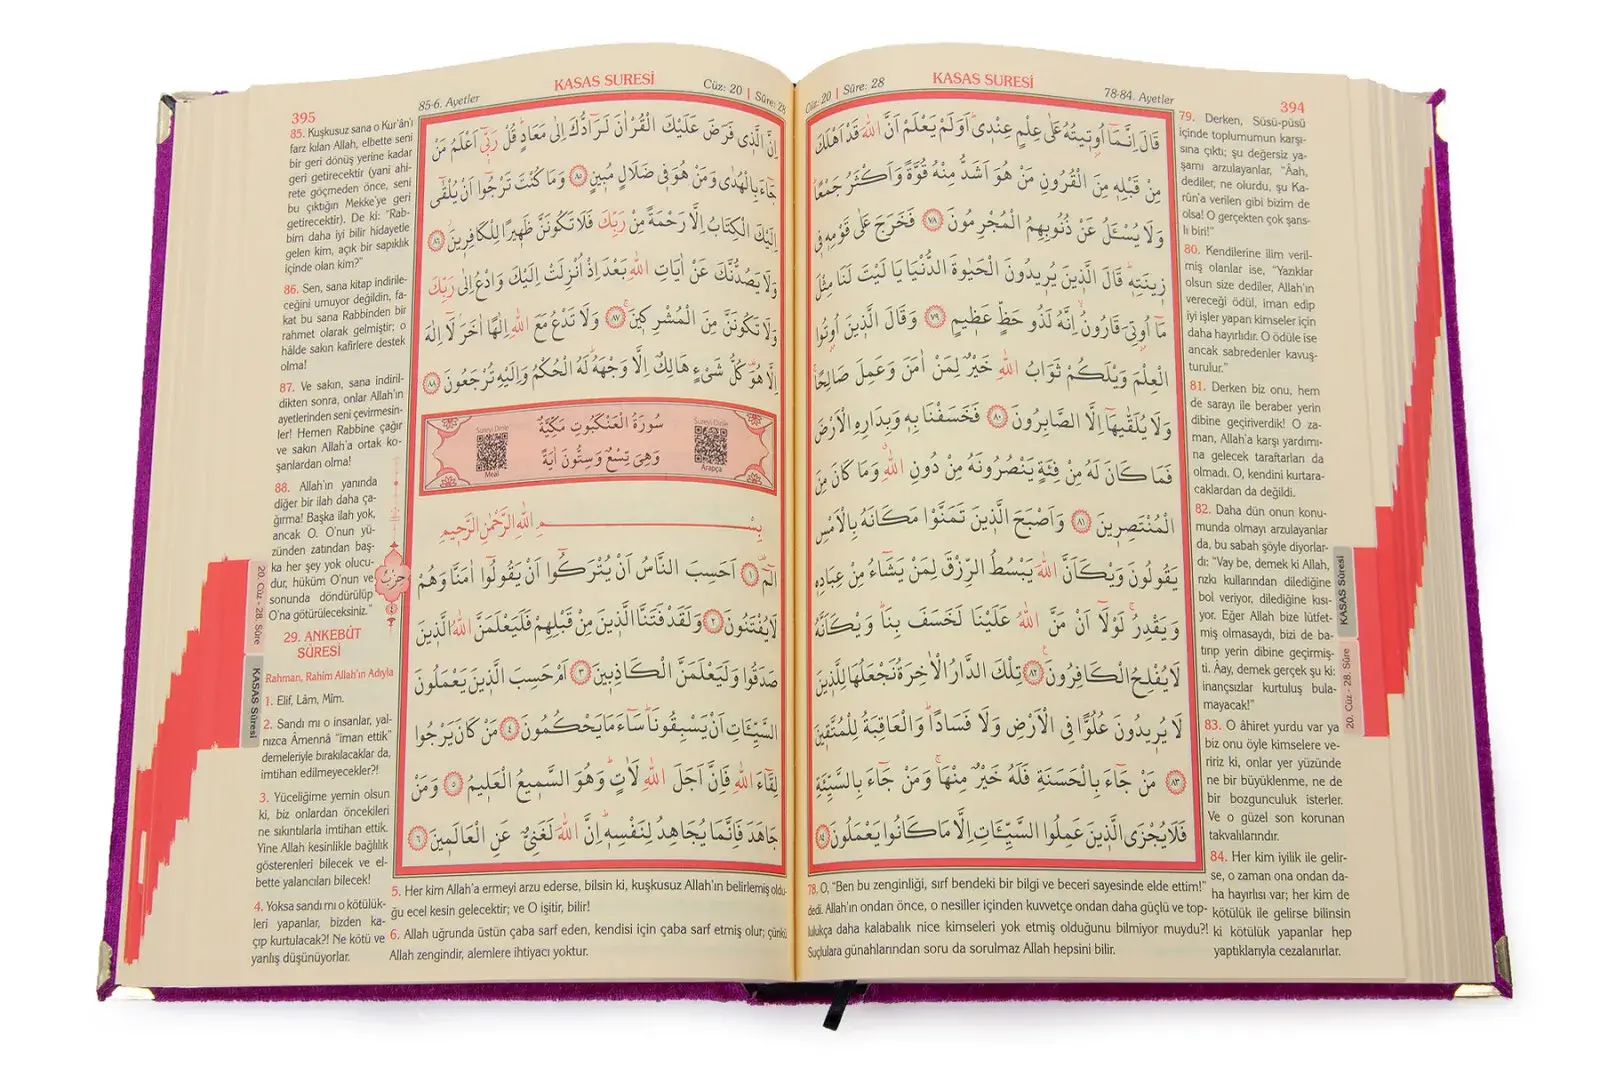 394
KASAS SURESİ
Cüz: 20 | Sûre: 28
78-84. Ayetler
قَالَ اِنَّمَٓا اُو۫ت۪يتُهُ عَلٰى عِلْمٍ عِنْد۪ي اَوَلَمْ يَعْلَمْ اَنَّ اللّٰهَ قَدْ اَهْلَكَ
مِنْ قَبْلِه۪ مِنَ الْقُرُونِ مَنْ هُوَ اَشَدُّ مِنْهُ قُوَّةً وَاَكْثَرُ جَمْعًا
وَلَا يُسْـَٔلُ عَنْ ذُنُوبِهِمُ الْمُجْرِمُونَ ٧٨ فَخَرَجَ عَلٰى قَوْمِه۪ ف۪ي
ز۪ينَتِه۪ قَالَ الَّذ۪ينَ يُر۪يدُونَ الْحَيٰوةَ الدُّنْيَا يَا لَيْتَ لَنَا مِثْلَ
مَٓا اُو۫تِيَ قَارُونُ اِنَّهُ لَذُو حَظٍّ عَظ۪يمٍ ٧٩ وَقَالَ الَّذ۪ينَ اُو۫تُوا
الْعِلْمَ وَيْلَكُمْ ثَوَابُ اللّٰهِ خَيْرٌ لِمَنْ اٰمَنَ وَعَمِلَ صَالِحًا
وَلَا يُلَقّٰيهَٓا اِلَّا الصَّابِرُونَ ٨٠ فَخَسَفْنَا بِه۪ وَبِدَارِهِ الْاَرْضَ
فَمَا كَانَ لَهُ مِنْ فِئَةٍ يَنْصُرُونَهُ مِنْ دُونِ اللّٰهِ وَمَا كَانَ مِنَ
الْمُنْتَصِر۪ينَ ٨١ وَاَصْبَحَ الَّذ۪ينَ تَمَنَّوْا مَكَانَهُ بِالْاَمْسِ
يَقُولُونَ وَيْكَاَنَّ اللّٰهَ يَبْسُطُ الرِّزْقَ لِمَنْ يَشَٓاءُ مِنْ عِبَادِه۪
وَيَقْدِرُ لَوْلَٓا اَنْ مَنَّ اللّٰهُ عَلَيْنَا لَخَسَفَ بِنَا وَيْكَاَنَّهُ
لَا يُفْلِحُ الْكَافِرُونَ ٨٢ تِلْكَ الدَّارُ الْاٰخِرَةُ نَجْعَلُهَا لِلَّذ۪ينَ
لَا يُر۪يدُونَ عُلُوًّا فِي الْاَرْضِ وَلَا فَسَادًا وَالْعَاقِبَةُ لِلْمُتَّق۪ينَ
٨٣ مَنْ جَٓاءَ بِالْحَسَنَةِ فَلَهُ خَيْرٌ مِنْهَا وَمَنْ جَٓاءَ بِالسَّيِّئَةِ
فَلَا يُجْزَى الَّذ۪ينَ عَمِلُوا السَّيِّـَٔاتِ اِلَّا مَا كَانُوا يَعْمَلُونَ ٨٤
78. O, "Ben bu zenginliği, sırf bendeki bir bilgi ve beceri sayesinde elde ettim!"
dedi. Allah'ın ondan önce, o nesiller içinden kuvvetçe ondan daha güçlü ve top-
lulukça daha kalabalık nice kimseleri yok etmiş olduğunu bilmiyor muydu?!
Suçlulara günahlarından soru da sorulmaz Allah hepsini bilir.
79. Derken, Süsü-püsü
içinde toplumumun karşı-
sına çıktı; şu değersiz ya-
şamı arzulayanlar, "Âah,
dediler, ne olurdu, şu Ka-
rûn'a verilen gibi bizim de
olsa! O gerçekten çok şans-
lı biri!"
80. Kendilerine ilim veril-
miş olanlar ise, "Yazıklar
olsun size dediler, Allah'ın
vereceği ödül, iman edip
iyi işler yapan kimseler için
daha hayırlıdır. O ödüle ise
ancak sabredenler kavuş-
turulur."
81. Derken biz onu, hem
de sarayı ile beraber yerin
dibine geçiriverdik! O za-
man, Allah'a karşı yardımı-
na gelecek taraftarları da
olmadı. O, kendini kurtara-
caklardan da değildi.
82. Daha dün onun konu-
munda olmayı arzulayanlar
da, bu sabah şöyle diyorlar-
dı: "Vay be, demek ki Allah,
rızkı kullarından dilediğine
bol veriyor, dilediğine kısı-
yor. Eğer Allah bize lütfet-
miş olmasaydı, bizi de ba-
tırıp yerin dibine geçirmiş-
ti. Âay, demek gerçek şu ki:
inançsızlar kurtuluş bula-
mayacak!"
83. O âhiret yurdu var ya
biz onu öyle kimselere ve-
ririz ki, onlar yer yüzünde
ne bir büyüklenme, ne de
bir bozgunculuk isterler.
Ve o güzel son korunan
takvalılarındır.
84. Her kim iyilik ile gelir-
se, o zaman ona ondan da-
ha hayırlısı var; her kim de
kötülük ile gelirse bilinsin
ki kötülük yapanlar hep
yaptıklarıyla cezalanırlar.
KASAS Sûresi
20. Cüz - 28. Sûre
395
85-6. Ayetler
KASAS SURESİ
Cüz: 20 | Sûre: 28
اِنَّ الَّذ۪ي فَرَضَ عَلَيْكَ الْقُرْاٰنَ لَرَٓادُّكَ اِلٰى مَعَادٍ قُلْ رَبّ۪ٓي اَعْلَمُ مَنْ
جَٓاءَ بِالْهُدٰى وَمَنْ هُوَ ف۪ي ضَلَالٍ مُب۪ينٍ ٨٥ وَمَا كُنْتَ تَرْجُٓوا اَنْ يُلْقٰٓى
اِلَيْكَ الْكِتَابُ اِلَّا رَحْمَةً مِنْ رَبِّكَ فَلَا تَكُونَنَّ ظَه۪يرًا لِلْكَافِر۪ينَ ٨٦
وَلَا يَصُدُّنَّكَ عَنْ اٰيَاتِ اللّٰهِ بَعْدَ اِذْ اُنْزِلَتْ اِلَيْكَ وَادْعُ اِلٰى رَبِّكَ
وَلَا تَكُونَنَّ مِنَ الْمُشْرِك۪ينَ ٨٧ وَلَا تَدْعُ مَعَ اللّٰهِ اِلٰهًا اٰخَرَ لَٓا اِلٰهَ
اِلَّا هُوَ كُلُّ شَيْءٍ هَالِكٌ اِلَّا وَجْهَهُ لَهُ الْحُكْمُ وَاِلَيْهِ تُرْجَعُونَ ٨٨
سُورَةُ الْعَنْكَبُوتِ مَكِّيَّةٌ
وَهِيَ تِسْعٌ وَسِتُّونَ اٰيَةً
Sureyi Dinle
Meal
Sureyi Dinle
Arapça
بِسْمِ اللّٰهِ الرَّحْمٰنِ الرَّح۪يمِ
الٓمٓ ١ اَحَسِبَ النَّاسُ اَنْ يُتْرَكُٓوا اَنْ يَقُولُٓوا اٰمَنَّا وَهُمْ
لَا يُفْتَنُونَ ٢ وَلَقَدْ فَتَنَّا الَّذ۪ينَ مِنْ قَبْلِهِمْ فَلَيَعْلَمَنَّ اللّٰهُ الَّذ۪ينَ
صَدَقُوا وَلَيَعْلَمَنَّ الْكَاذِب۪ينَ ٣ اَمْ حَسِبَ الَّذ۪ينَ يَعْمَلُونَ
السَّيِّـَٔاتِ اَنْ يَسْبِقُونَا سَٓاءَ مَا يَحْكُمُونَ ٤ مَنْ كَانَ يَرْجُوا
لِقَٓاءَ اللّٰهِ فَاِنَّ اَجَلَ اللّٰهِ لَاٰتٍ وَهُوَ السَّم۪يعُ الْعَل۪يمُ ٥ وَمَنْ
جَاهَدَ فَاِنَّمَا يُجَاهِدُ لِنَفْسِه۪ اِنَّ اللّٰهَ لَغَنِيٌّ عَنِ الْعَالَم۪ينَ ٦
حزب
85. Kuşkusuz sana o Kur'ân'ı
farz kılan Allah, elbette seni
bir geri dönüş yerine kadar
geri getirecektir (yani ahi-
rete göçmeden önce, seni
bu çıktığın Mekke'ye geri
getirecektir). De ki: "Rab-
bim daha iyi bilir hidayetle
gelen kim, açık bir sapıklık
içinde olan kim?"
86. Sen, sana kitap indirile-
ceğini umuyor değildin, fa-
kat bu sana Rabbinden bir
rahmet olarak gelmiştir; o
hâlde sakın kafirlere destek
olma!
87. Ve sakın, sana indiril-
dikten sonra, onlar Allah'ın
ayetlerinden seni çevirmesin-
ler! Hemen Rabbine çağır
ve sakın Allah'a ortak ko-
şanlardan olma!
88. Allah'ın yanında
diğer bir ilah daha ça-
ğırma! Başka ilah yok,
ancak O. O'nun yü-
zünden zatından baş-
ka her şey yok olucu-
dur, hüküm O'nun ve
sonunda döndürülüp
O'na götürüleceksiniz."
29. ANKEBÛT
SÛRESİ
Rahman, Rahîm Allah'ın Adıyla
1. Elif, Lâm, Mîm.
2. Sandı mı o insanlar, yal-
nızca Âmennâ "iman ettik"
demeleriyle bırakılacaklar da,
imtihan edilmeyecekler?!
3. Yüceliğime yemin olsun
ki, biz onlardan öncekileri
ne sıkıntılarla imtihan ettik.
Yine Allah kesinlikle bağlılık
gösterenleri bilecek ve el-
bette yalancıları bilecek!
4. Yoksa sandı mı o kötülük-
leri yapanlar, bizden ka-
çıp kurtulacak?! Ne kötü ve
yanlış düşünüyorlar.
5. Her kim Allah'a ermeyi arzu ederse, bilsin ki, kuşkusuz Allah'ın belirlemiş oldu-
ğu ecel kesin gelecektir; ve O işitir, bilir!
6. Allah uğrunda üstün çaba sarf eden, kendisi için çaba sarf etmiş olur; çünkü
Allah zengindir, alemlere ihtiyacı yoktur.
20. Cüz - 28. Sûre
KASAS Sûresi